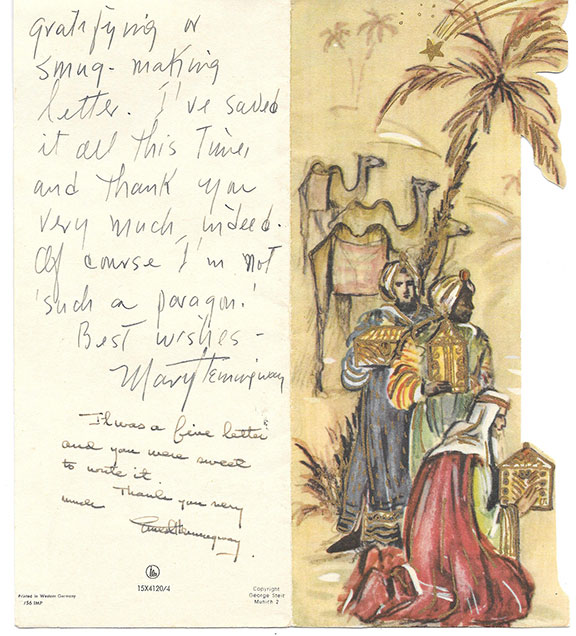 gratifying or
smug-making
letter. I've saved
it all this Time,
and thank you
very much, indeed.
Of course I'm not
'such a paragon.'
Best wishes -
Mary Hemingway
It was a fine letter
and you were sweet
to write it.
Thank you very
much
Ernest Hemingway.
15X4120/4
Printed in Western Germany
/56 IMP
Copyright
George Steil
Munich 2